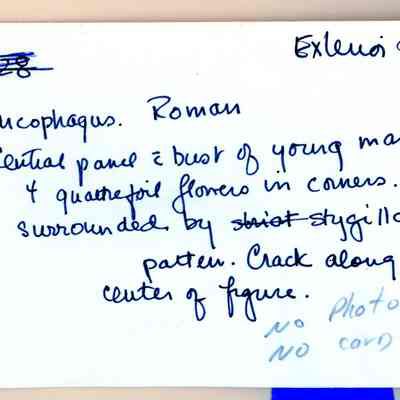 28
Exterior
ucophagus. Roman
Central panel c̄ bust of young ma
4 quatrefoil flowers in corners.
surrounded by strict stygill
pattern. Crack along
center of figure.
NO Photo
NO card